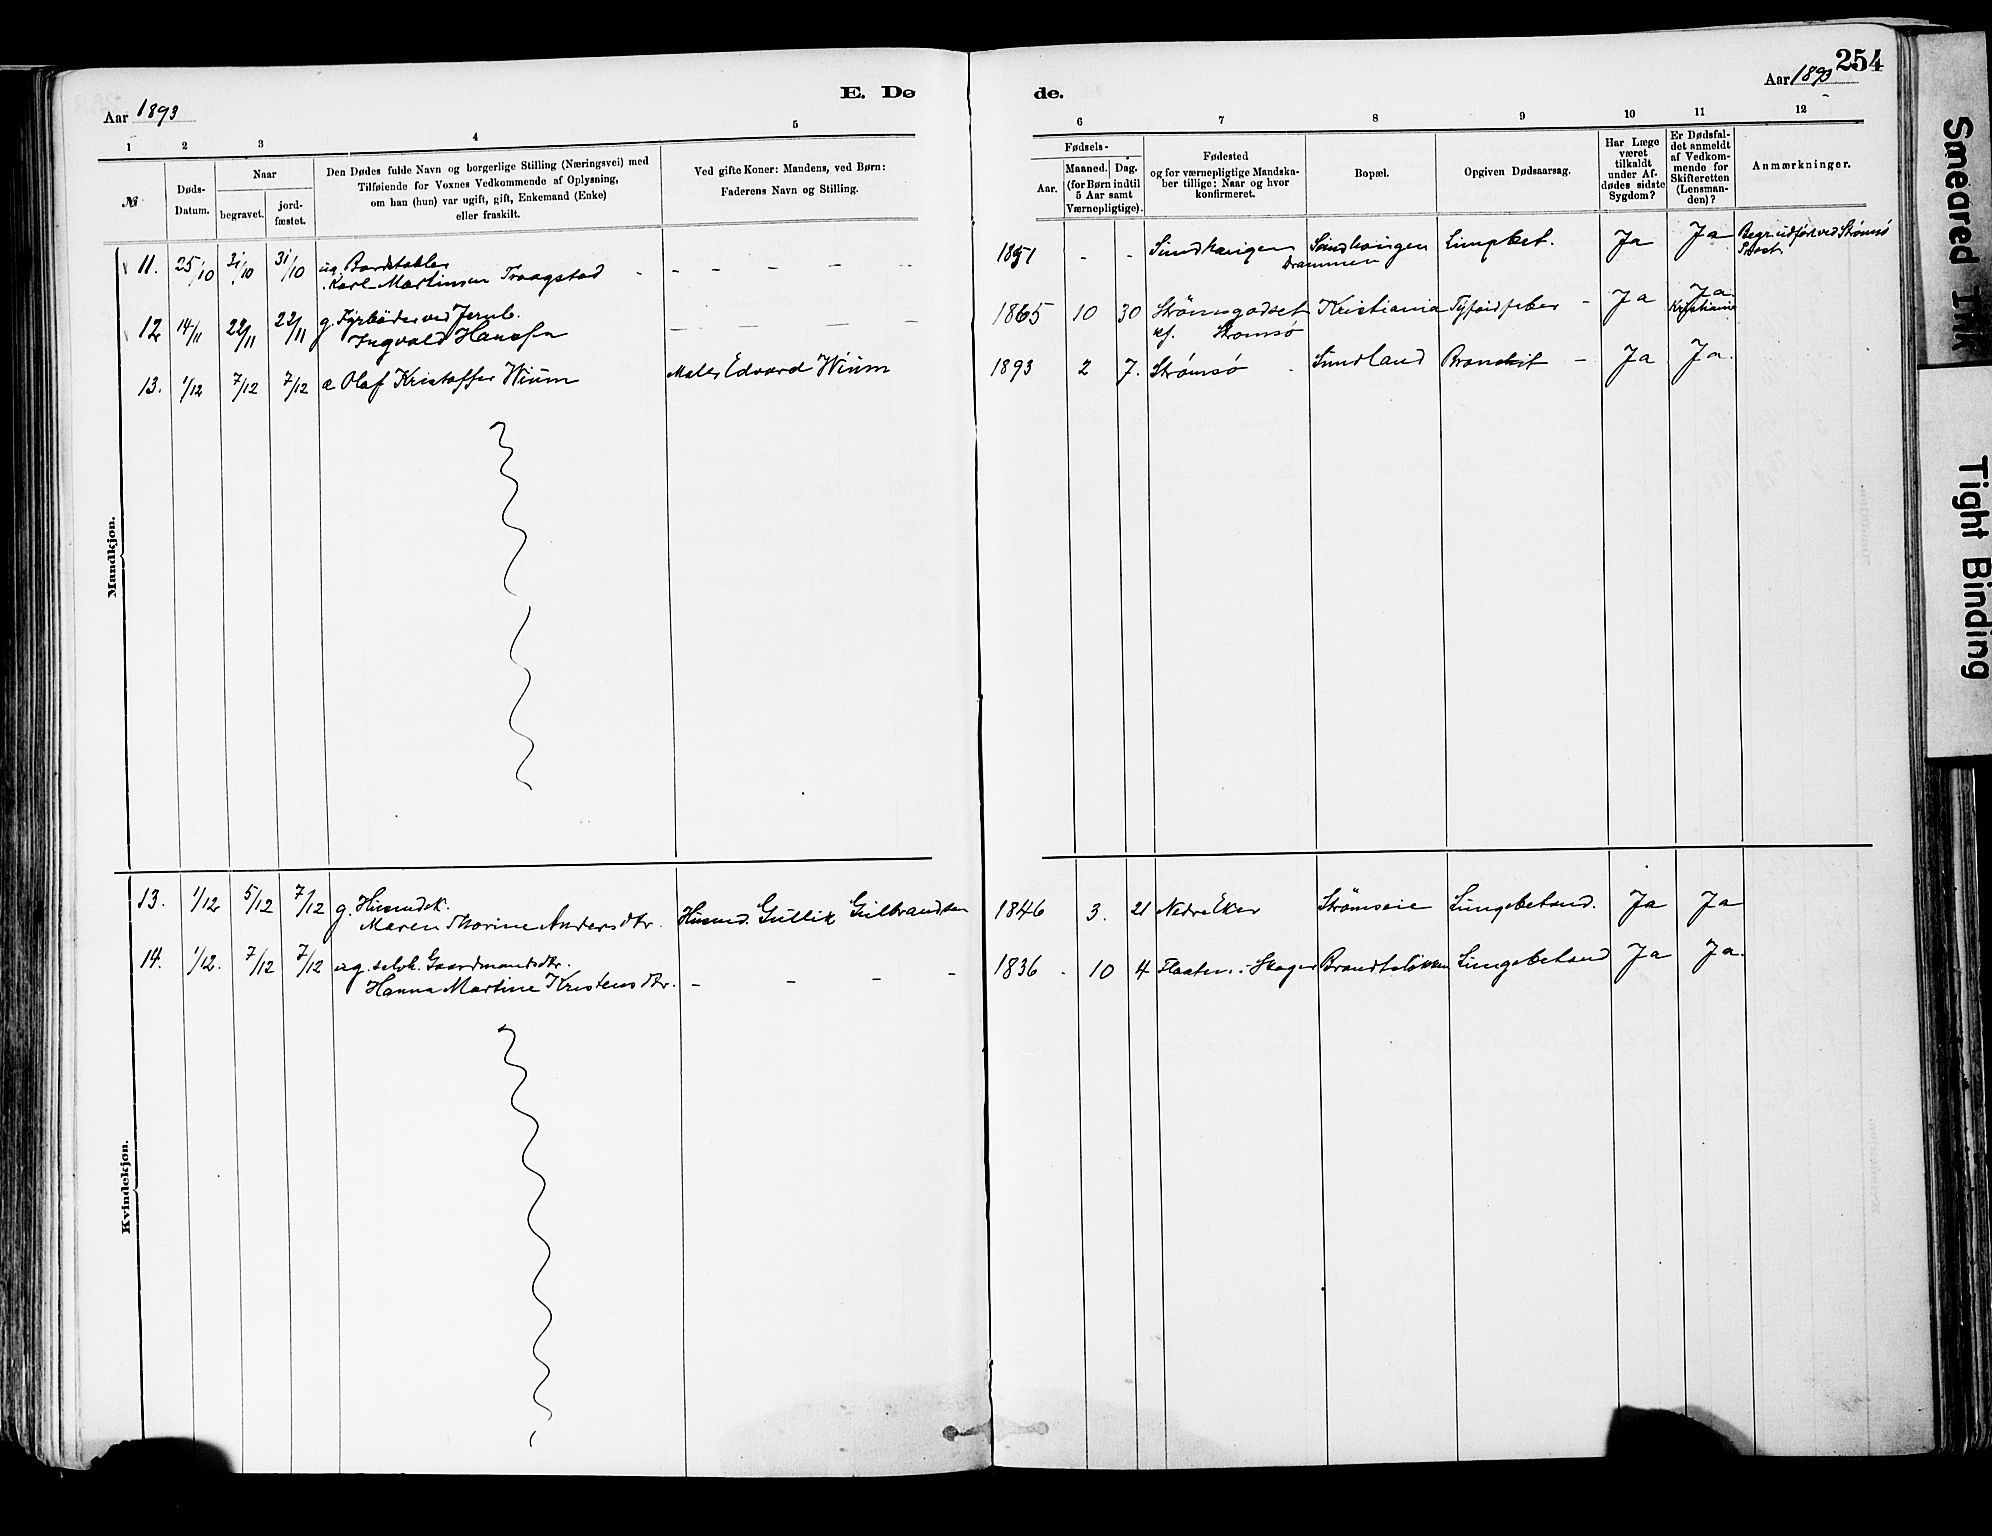 254
Aar 1893
E. Dø
de.
Aar 1893
1 2 3 4 5 6 7 8 9 10 11 12
№
Døds-
Datum.
Naar
begravet.
jord-
fæstet.
Den Dødes fulde Navn og borgerlige Stilling (Næringsvei) med
Tilføiende for Voxnes Vedkommende af Oplysning,
om han (hun) var ugift, gift, Enkemand (Enke)
eller fraskilt.
Ved gifte Koner: Mandens, ved Børn:
Faderens Navn og Stilling.
Fødsels-
Aar.
Maaned. Dag.
(for Børn indtil
5 Aar samt
Værnepligtige).
Fødested
og for værnepligtige Mandska-
ber tillige: Naar og hvor
konfirmeret.
Bopæl.
Opgiven Dødsaarsag.
Har Læge
været
tilkaldt
under Af-
dødes sidste
Sygdom?
Er Dødsfal-
det anmeldt
af Vedkom-
mende for
Skifteretten
(Lensman-
den)?
Anmærkninger.
Mandkjøn.
11. 25/10 31/10 31/10 ug. Bordstabler
Karl Martinsen Traagstad - - - - - -
1851 - - Sundhaugen Sundhaugen
Drammen
Ja Ja Begr. udført ved Strømsø
Præst.
12 14/11 22/11 22/11 g. Fyrbøder ved Jernb.
Ingvald Hansen - - - - -
1865 10 30 Strømsgodset Kristiania Tyfoidfeber - Ja Ja
Kristiania
kf. Strømsø
13. 1/12 7/12 7/12 æ Olaf Kristoffer Wium Maler Edvard Wium
1893 2 7. Strømsø Sundland Bronchit - Ja Ja.
Kvindekjøn.
13. 1/12 5/12 7/12 g. Husmdsk.
Maren Thorine Andersdtr. Husmd. Gullik Gulbrandsen
1846 3. 21 Nedre Eker Strømsøie Lungebetænd. Ja Ja
14. 1/12. 7/12 7/12 ug. selvk. Gaardmandsdtr.
Hanna Martine Kristensdtr. - - - -
1836 10 4 Flaaten i Skoger Brandtsløkken Lungebetænd Ja Ja.
Smeared Ink
Tight Binding